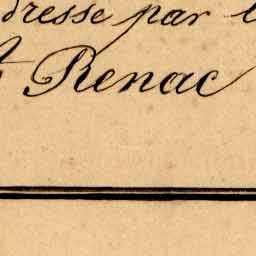 dresse par l
Renac